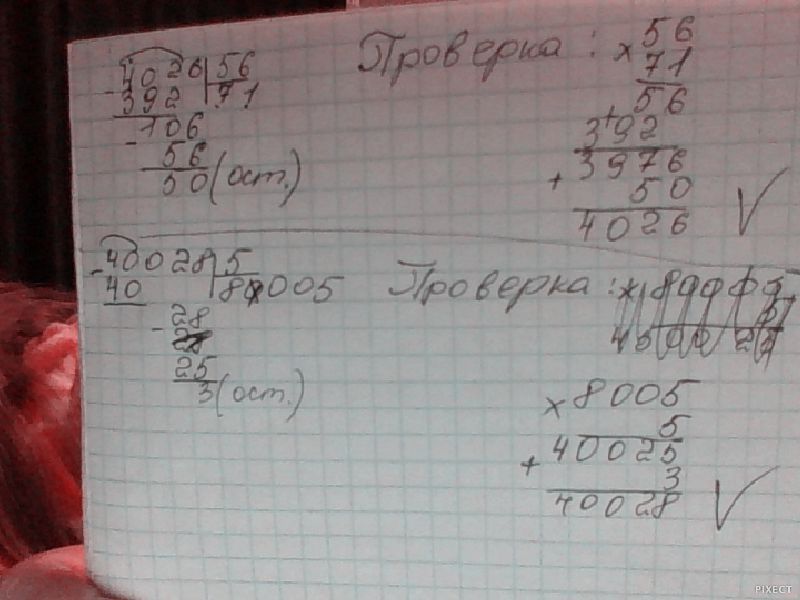 4026 56 Проверка: × 56
- 392 71 71
106 56
- 56 392
50 (ост.) 3976
+ 50
4026 √
- 40028 5 Проверка:
40 8005
- 28
25 × 8005
3 (ост.) 5
+ 40025
3
40028 √
PIXECT